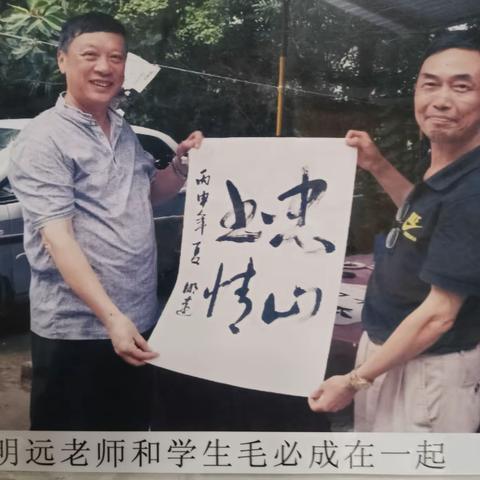 山
情
丙申年夏 明远
明远老师和学生毛必成在一起